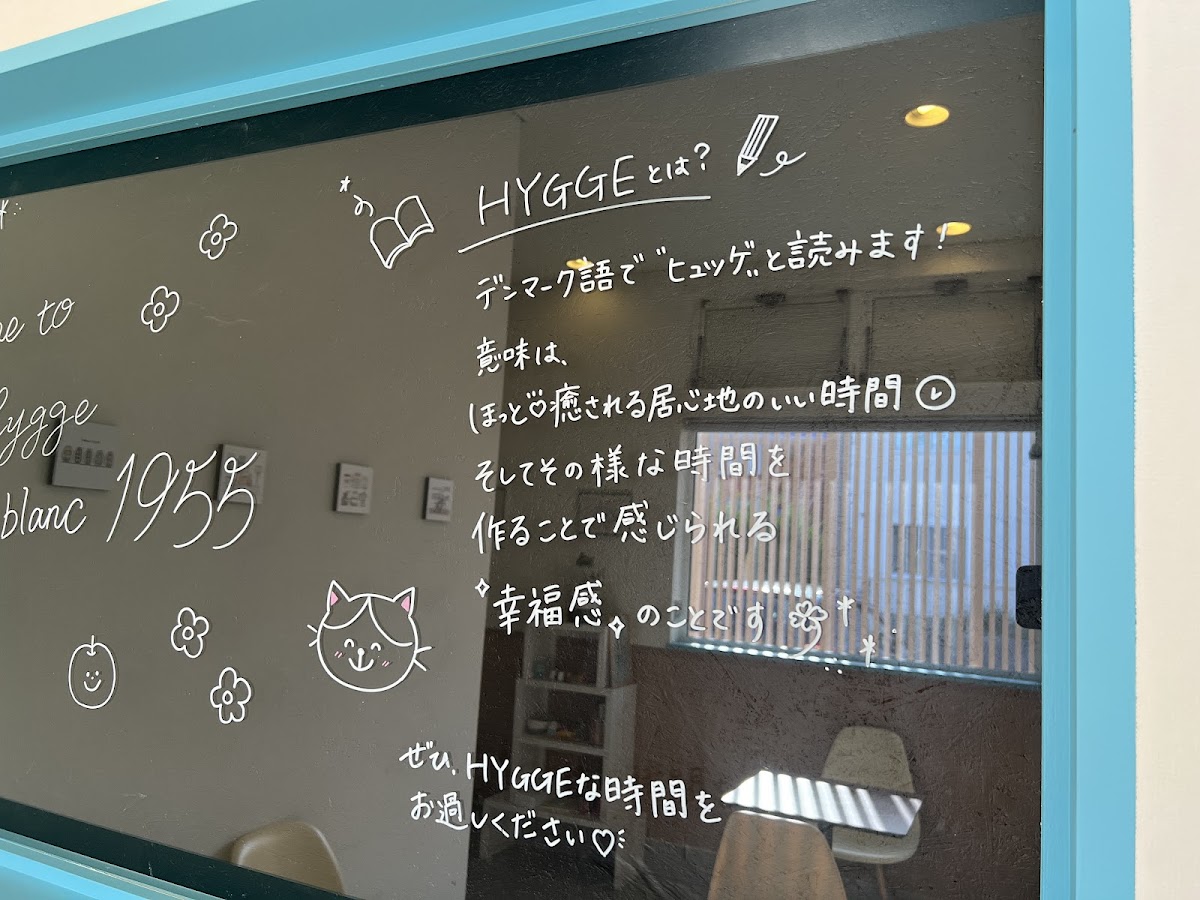 to
hygge
blanc 1955
HYGGEとは?
デンマーク語で"ヒュッゲ"と読みます!
意味は、
ほっと♡癒される居心地のいい時間
そしてその様な時間を
作ることで感じられる
幸福感のことです
ぜひ、HYGGEな時間を
お過しください♡